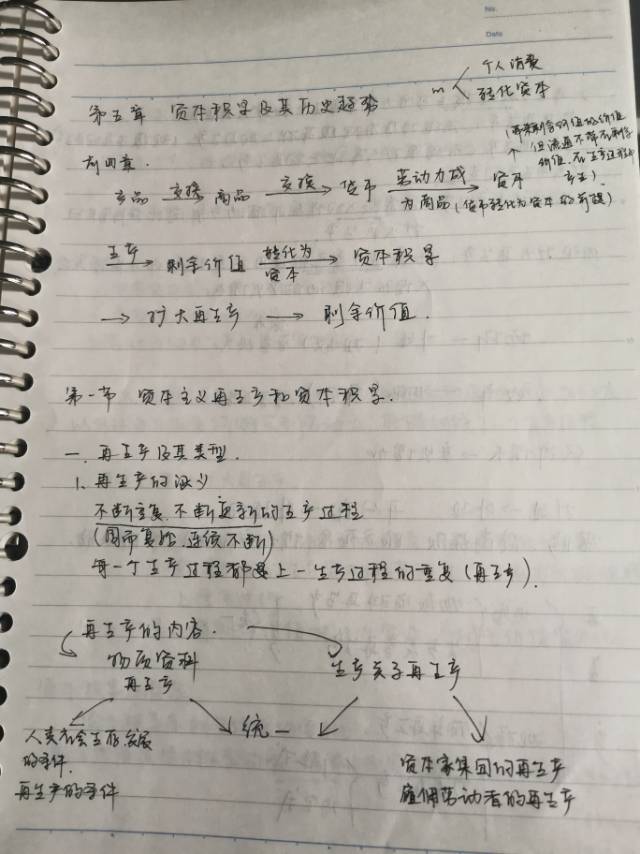 No.
Date
m 个人消费
转化资本
第五章 资本积累及其历史趋势
(带来剩余价值的价值
前四章. 但流通不带来剩余
价值,在生产过程中
产品 交换 商品 交换 货币 劳动力成 资本 产生)
为商品(货币转化为资本的前提)
生产 剩余价值 转化为 资本积累
资本
→ 扩大再生产 → 剩余价值.
第一节 资本主义再生产和资本积累.
一.再生产及其类型.
1.再生产的涵义
不断重复,不断更新的生产过程
(周而复始,连续不断)
每一个生产过程都是上一生产过程的重复(再生产).
再生产的内容.
物质资料
再生产
生产关系再生产
统一
人类社会生存,发展
的条件.
再生产的条件
资本家集团的再生产
雇佣劳动者的再生产